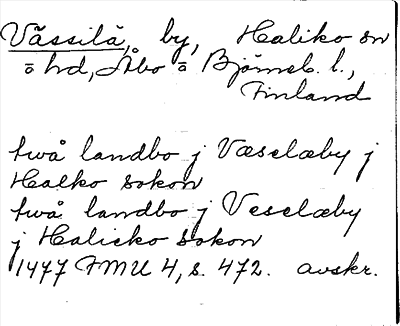 Vässilä, by, Haliko sn
o hd, Åbo o Björneb. l.,
Finland
twå landbo j Væselæby j
Halko sokon
twå landbo j Veselæby
j Halicko sokon
1477 FMU 4, s. 472. avskr.